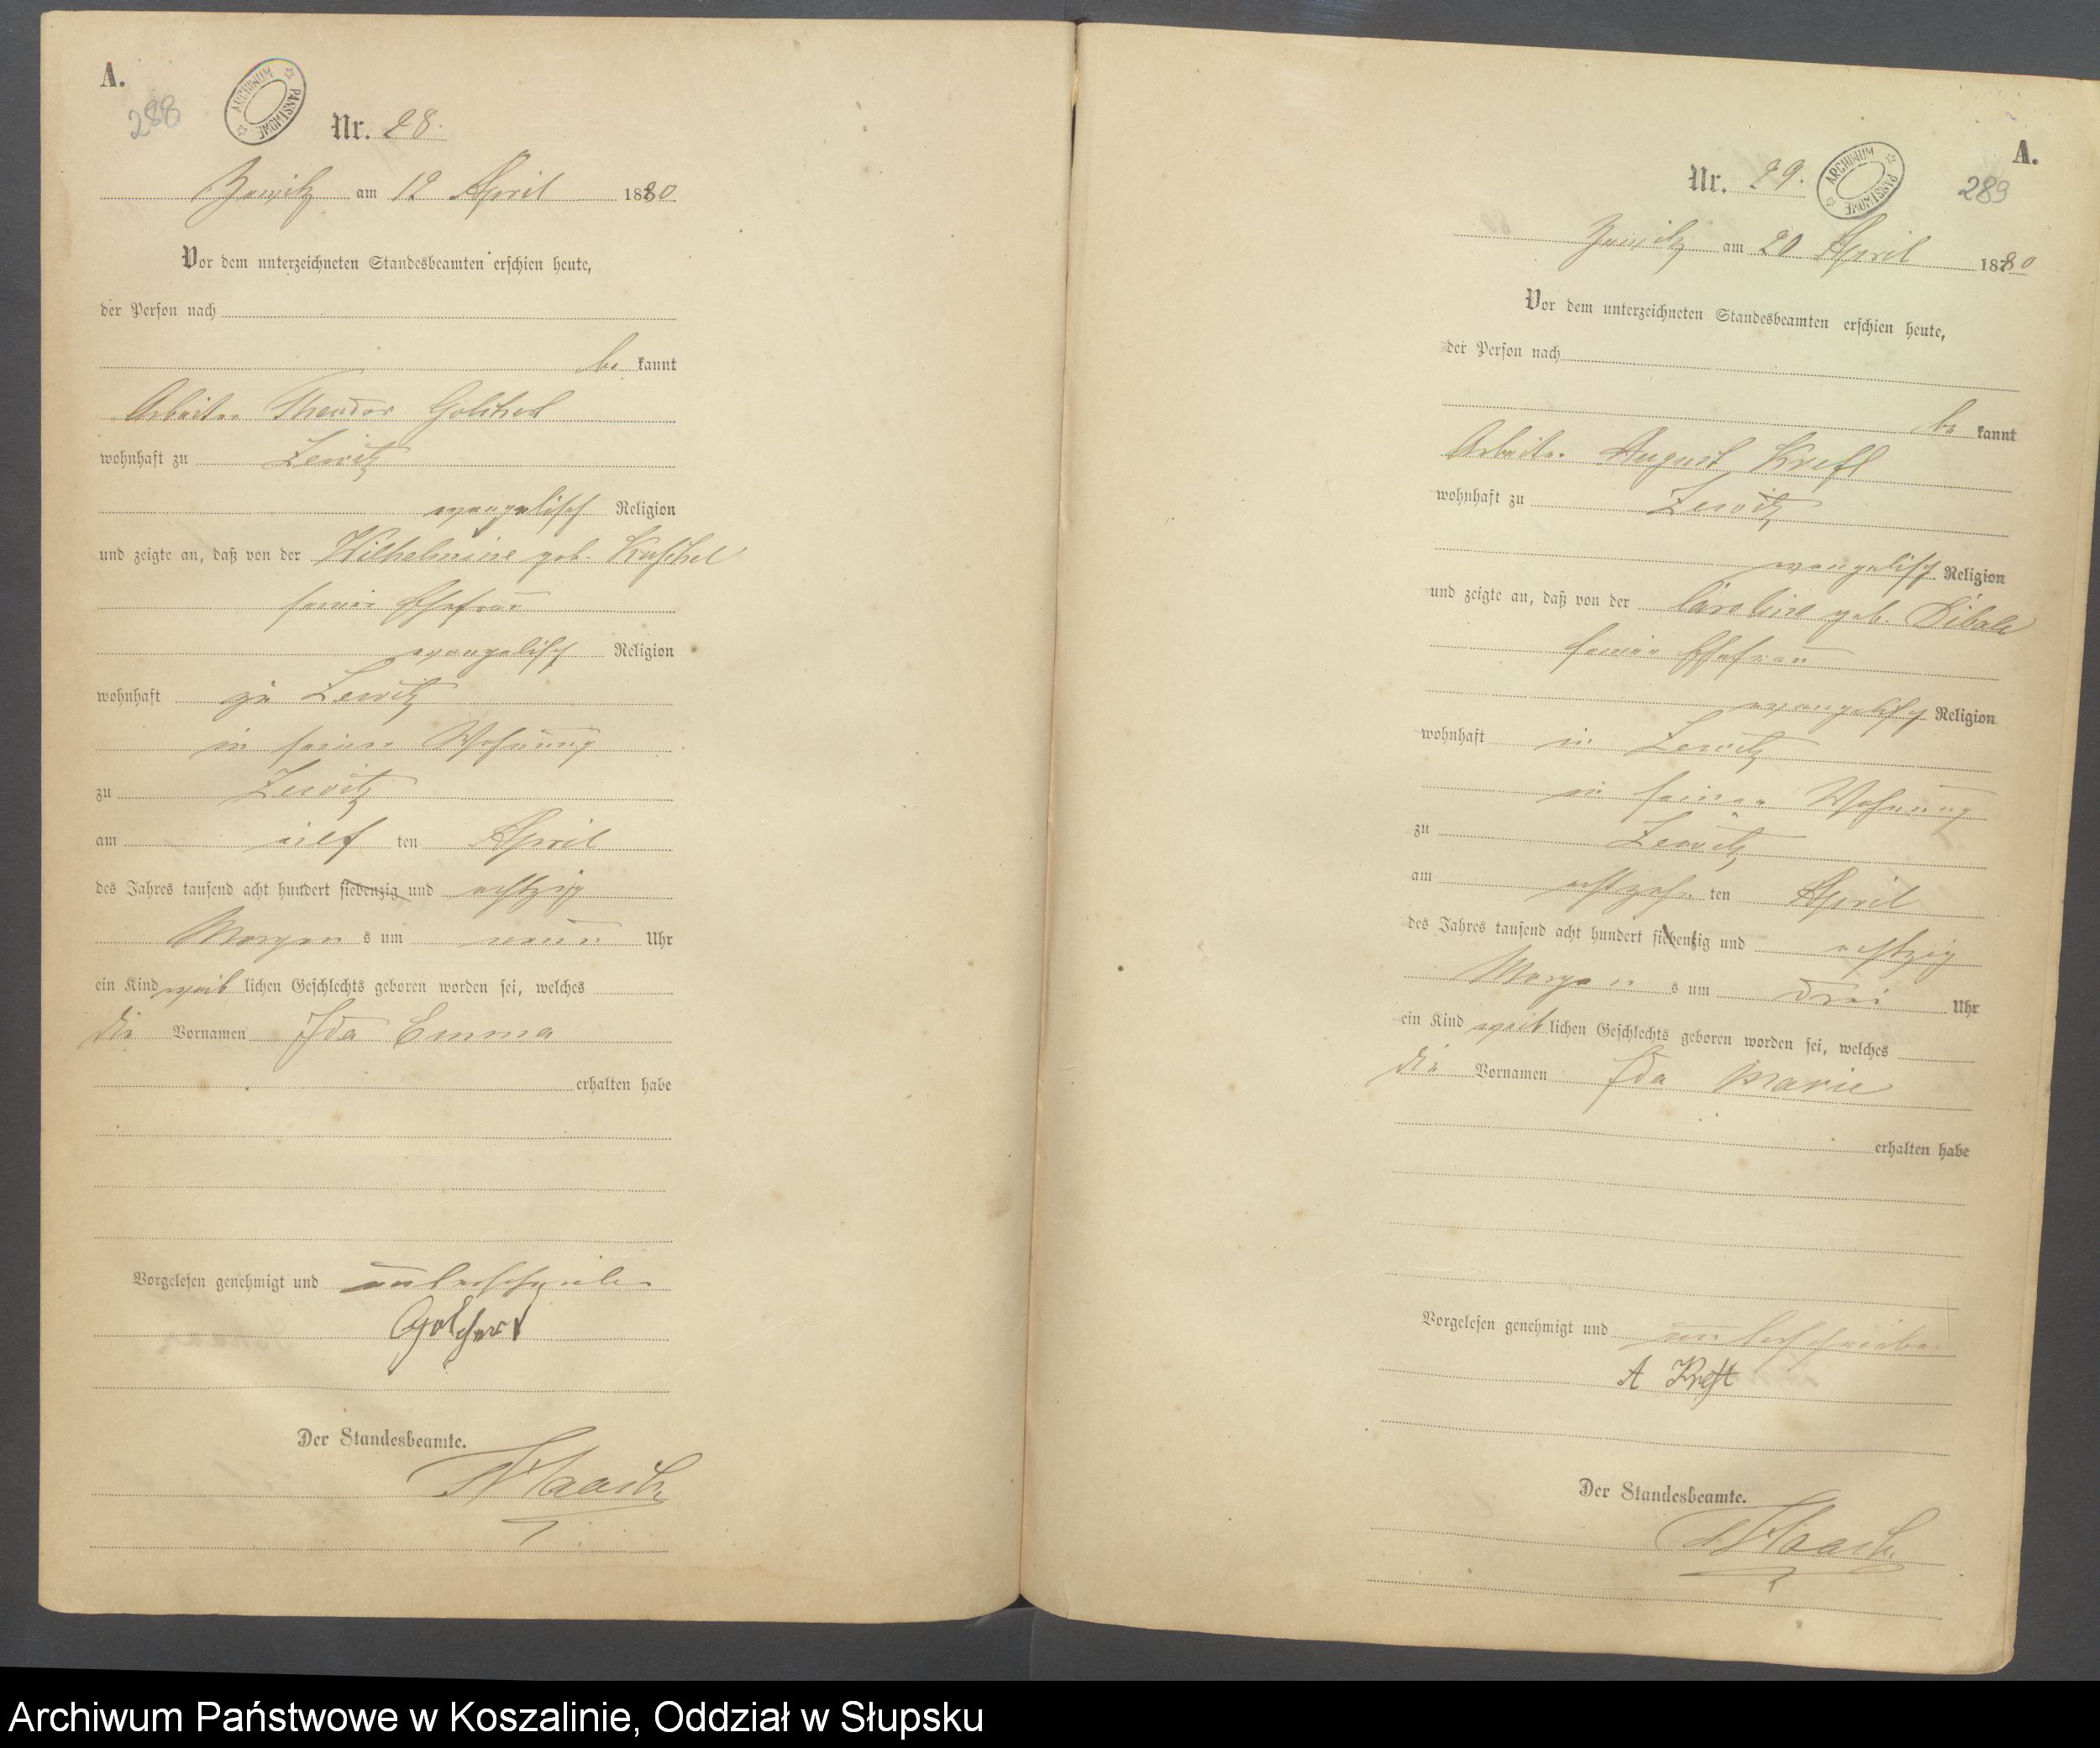 A.
288
ARCHIWUM PAŃSTWOWE
Nr. 28.
am 12 April 1880
Vor dem unterzeichneten Standesbeamten erschien heute,
der Person nach
be kannt
Arbeiter Theodor Golchert
wohnhaft zu Zewitz
evangelisch Religion
und zeigte an, daß von der Wilhelmine geb. Kuschel
seiner Ehefrau
evangelisch Religion
wohnhaft zu Zewitz
in seiner Wohnung
zu Zewitz
am eilf ten April
des Jahres tausend acht hundert siebenzig und achtzig
Morgen s um neun Uhr
ein Kind weib lichen Geschlechts geboren worden sei, welches
die Vornamen Ida Emma
erhalten habe
Vorgelesen genehmigt und unterschrieben
Golchert
Der Standesbeamte.
A.
289
ARCHIWUM PAŃSTWOWE
Nr. 29.
am 20 April 1880
Vor dem unterzeichneten Standesbeamten erschien heute,
der Person nach
be kannt
Arbeiter August Kreft
wohnhaft zu Zewitz
evangelisch Religion
und zeigte an, daß von der Caroline geb. Dibale
seiner Ehefrau
evangelisch Religion
wohnhaft in Zewitz
in seiner Wohnung
zu Zewitz
am achtzehn ten April
des Jahres tausend acht hundert siebenzig und achtzig
Morgen s um drei Uhr
ein Kind weib lichen Geschlechts geboren worden sei, welches
die Vornamen Ida Marie
erhalten habe
Vorgelesen genehmigt und unterschrieben
A Kreft
Der Standesbeamte.
Archiwum Państwowe w Koszalinie, Oddział w Słupsku